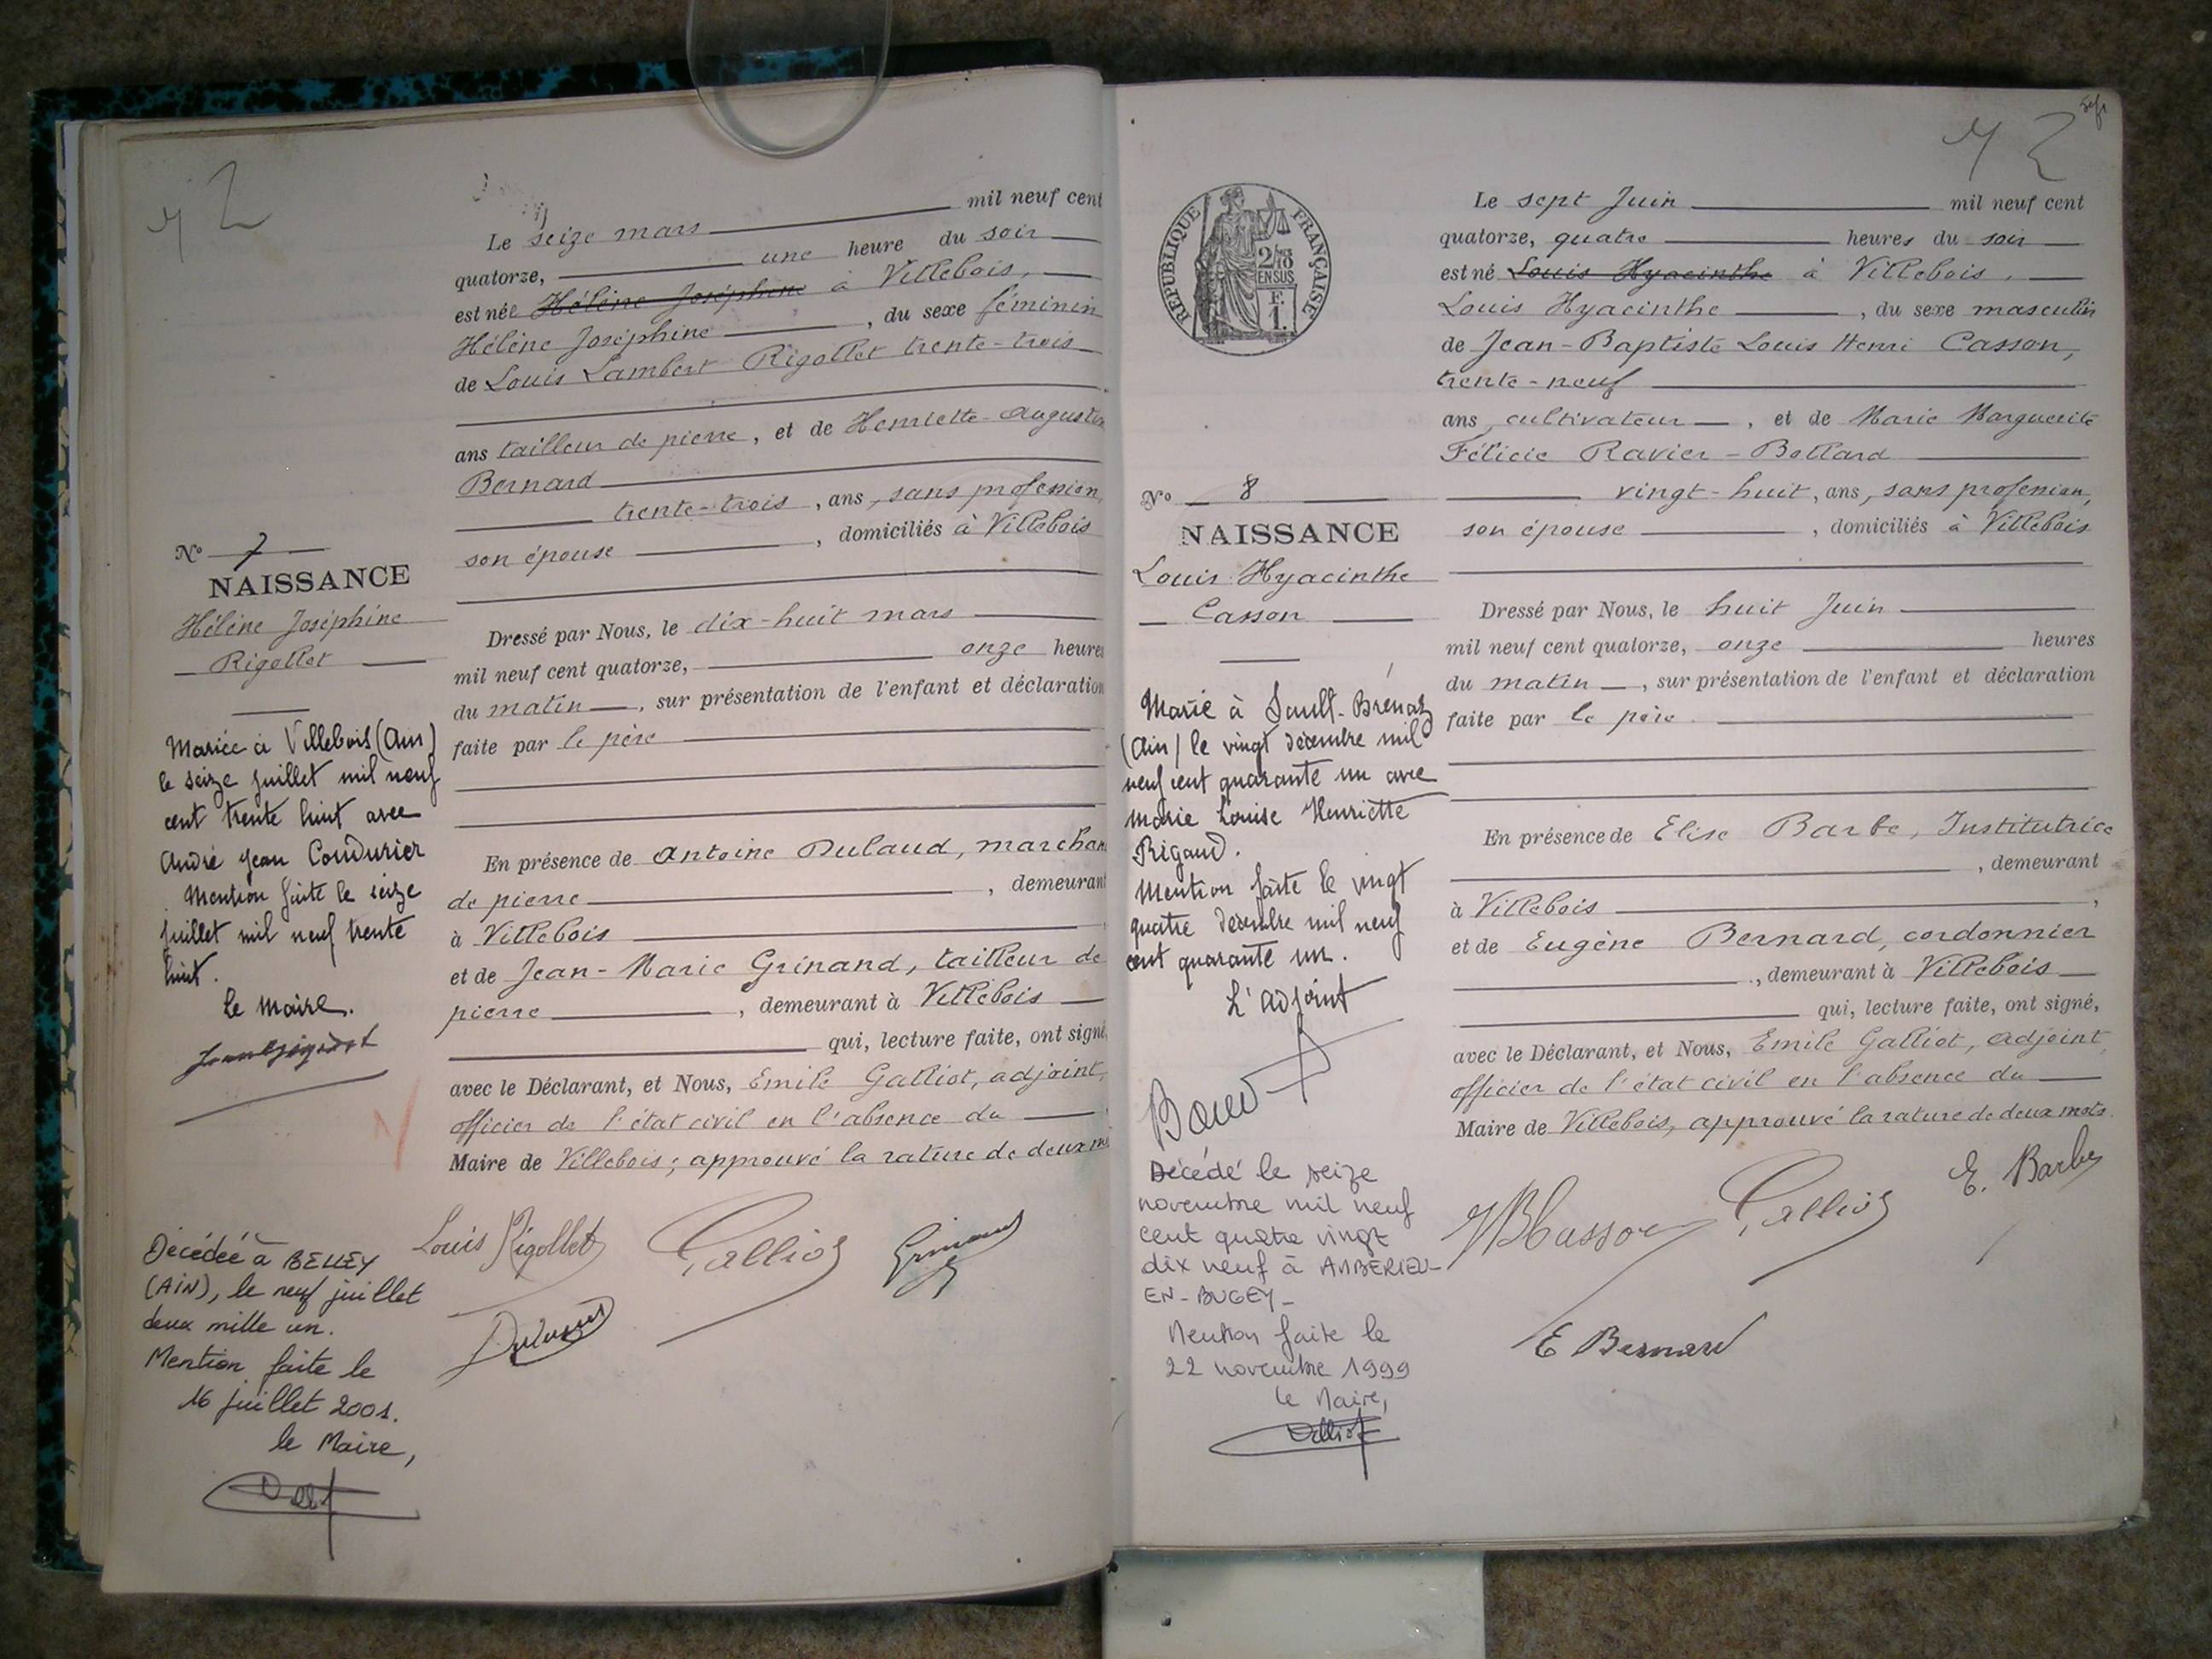 Le seize mars mil neuf cent
quatorze, une heure du soir
est née Hélène Joséphine à Villebois,
Hélène Joséphine, du sexe féminin
de Louis Lambert Rigollet trente-trois
ans tailleur de pierre, et de Henriette-Augustin
Bernard
trente-trois, ans, sans profession,
son épouse, domiciliés à Villebois
N° 7
NAISSANCE
Hélène Joséphine
Rigollet
Dressé par Nous, le dix-huit mars
mil neuf cent quatorze, onze heures
du matin, sur présentation de l'enfant et déclaration
faite par le père
En présence de Antoine Dulaud, marchan
de pierre, demeurant
à Villebois
et de Jean-Marie Grinand, tailleur de
pierre, demeurant à Villebois
qui, lecture faite, ont signé,
avec le Déclarant, et Nous, Emile Galliot, adjoint,
officier de l'état civil en l'absence du
Maire de Villebois; approuvé la rature de deux m
Mariée à Villebois (Ain)
le seize juillet mil neuf
cent trente huit avec
André Jean Condurier
Mention faite le seize
juillet mil neuf trente
huit.
Le Maire.
Louis Rigollet
Galliot
Grinand
Dulaud
Décédée à BELLEY
(AIN), le neuf juillet
deux mille un.
Mention faite le
16 juillet 2001.
le Maire,
42
RÉPUBLIQUE FRANÇAISE
2/10
EN SUS
F.
1.
Le sept Juin mil neuf cent
quatorze, quatre heures du soir
est né Louis Hyacinthe à Villebois,
Louis Hyacinthe, du sexe masculin
de Jean-Baptiste Louis Henri Casson,
trente-neuf
ans, cultivateur, et de Marie Marguerite
Félicie Ravier-Bollard
vingt-huit, ans, sans profession,
son épouse, domiciliés à Villebois
N° 8
NAISSANCE
Louis Hyacinthe
Casson
Dressé par Nous, le huit Juin
mil neuf cent quatorze, onze heures
du matin, sur présentation de l'enfant et déclaration
faite par le père.
En présence de Elise Barbe, Institutrice
, demeurant
à Villebois,
et de Eugène Bernard, cordonnier
, demeurant à Villebois
qui, lecture faite, ont signé,
avec le Déclarant, et Nous, Emile Galliot, adjoint,
officier de l'état civil en l'absence du
Maire de Villebois, approuvé la rature de deux mots.
Marié à Sault-Brénaz
(Ain) le vingt décembre mil
neuf cent quarante un avec
Marie Louise Henriette
Rigaud.
Mention faite le vingt
quatre décembre mil neuf
cent quarante un.
L'adjoint
Casson
Galliot
E. Barbe
E Bernard
Décédé le seize
novembre mil neuf
cent quatre vingt
dix neuf à AMBÉRIEU-
EN-BUGEY_
Mention faite le
22 novembre 1999
le Maire,